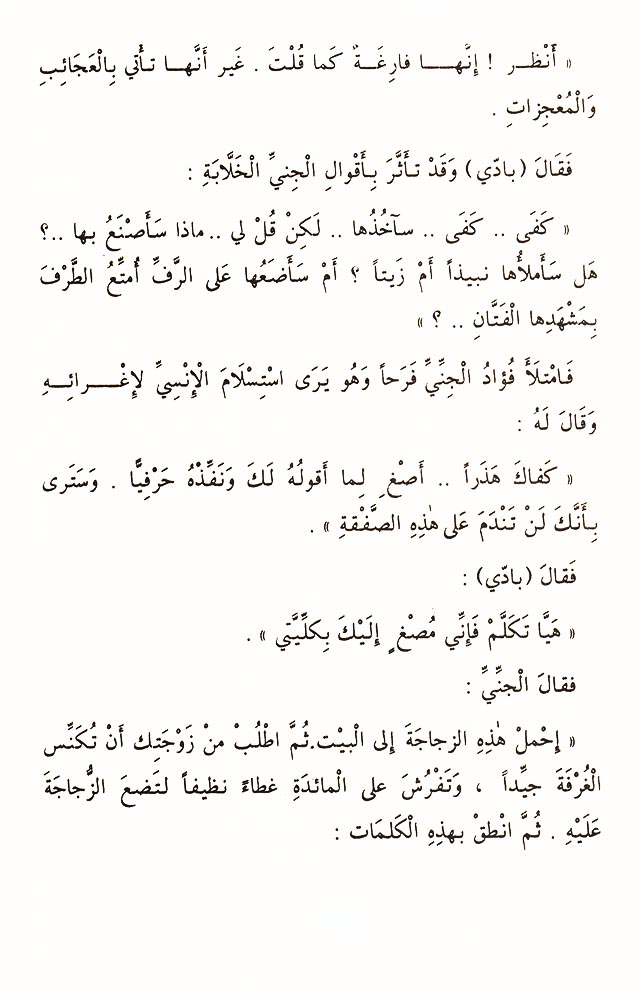 « أَنْظـر ! إِنَّهـــا فارِغَـةٌ كَما قُلْتَ . غَير أَنَّهـا تـأتي بِالْعَجَائِبِ
وَالْمُعْجِزاتِ .
فَقَالَ (بادّي) وَقَدْ تـأَثَّرَ بِـأَقْوالِ الْجِنيِّ الْخَلَّابَةِ :
« كَفَى .. كَفَى .. سـآخُذُها .. لَكِنْ قُلْ لي .. ماذا سَأَصْنَعُ بـها ..؟
هَل سَأَملأُها نـبيذاً أَمْ زَيتاً ؟ أَمْ سَأَضَعُها عَلى الرَّفِّ أُمتِّعُ الطَّرْفَ
بِـمَشْهَدِها الْفَتَّانِ .. ؟ »
فَـامْتَلَأَ فُؤادُ الْجِنِّيِّ فَرَحاً وَهُو يَرَى اسْتِسْلَامَ الْإِنْسِيِّ لإِغْـــرائِــهِ
وَقَالَ لَهُ :
« كَفاكَ هَذَراً .. أَصْغِ لِـما أَقولُهُ لَكَ وَنَفِّذْهُ حَرْفِيًّا . وَسَتَرى
بِـأَنَّكَ لَنْ تَنْدَمَ عَلى هٰذِهِ الصَّفْقةِ » .
فَقالَ (بادّي) :
« هَيَّا تَكَلَّمْ فَإِنِّي مُصْغٍ إِلَيْكَ بِكلِّيَّتي » .
فقالَ الْجنِّيِّ :
« إِحْملْ هٰذِهِ الزجاجَةَ إِلى الْبيْت.ثُمَّ اطْلُبْ منْ زَوْجَتِك أَنْ تُكَنِّس
الْغُرْفَةَ جيِّداً ، وَتَفْرُشَ على الْمائدَةِ غطاءً نظيفاً لـتَضعَ الزُّجاجَةَ
عَلَيْهِ . ثُمَّ انْطقْ بـهذِهِ الْكَلمَات :